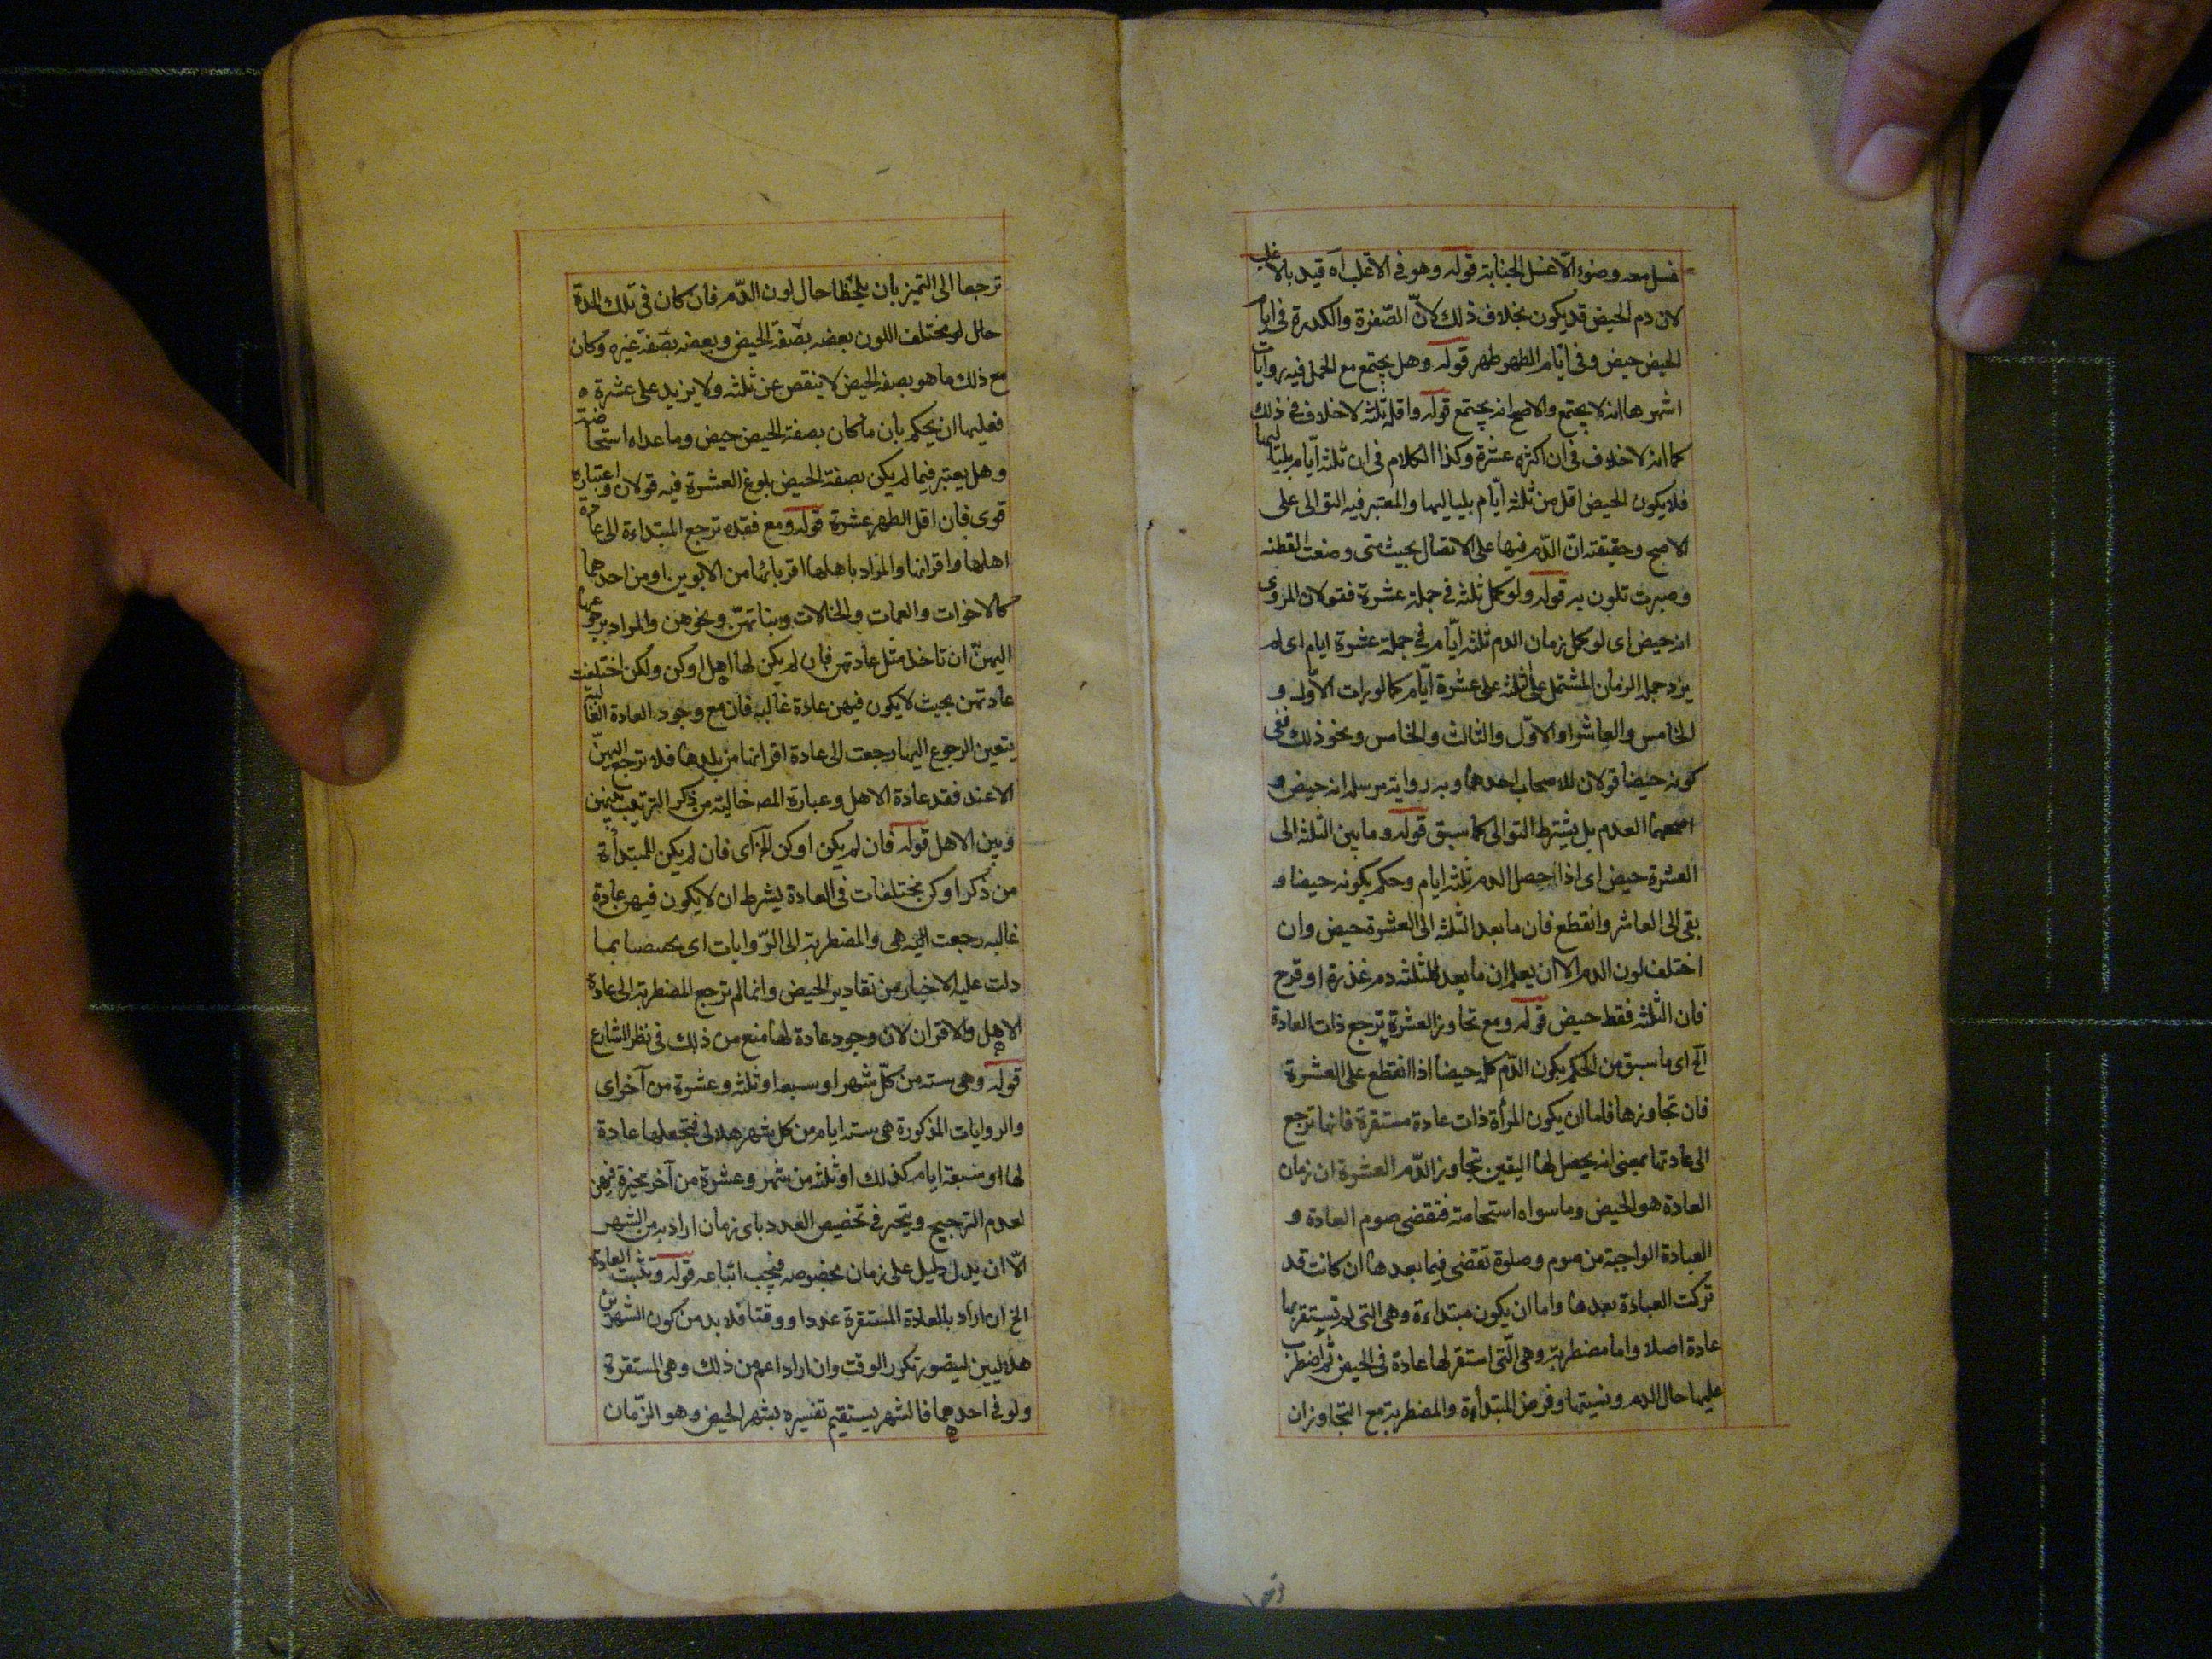 غسل معه وضوء الا غسل الجنابة قوله وهو فى الاغلب اه قيد بالاغلب
لان دم الحيض قد يكون بخلاف ذلك لانّ الصّفرة والكدرة فى ايام
الحيض حيض وفى ايّام الطهر طهر قوله وهل يجتمع مع الحمل فيه روايات
اشهرها انه لا يجتمع والاصح انه يجتمع قوله واقله ثلثه لا خلاف فى ذلك
كما انه لا خلاف فى ان اكثره عشرة وكذا الكلام فى ان ثلثه ايّام بلياليها
فلا يكون الحيض اقل من ثلثه ايّام بلياليها والمعتبر فيه التوالى على
الاصح وحقيقته انّ الدّم فيها على الاتصال بحيث متى وضعت القطنه
وصبرت تلون به قوله ولو كمل ثلثه فى جملة عشرة فقولان المروى
انه حيض اى لو كمل زمان الدم ثلثه ايّام فى جملة عشرة ايام اى لم
يزد جملة الزمان المشتمل على ثلثه على عشرة ايّام كما لو رات الاوّل و
الخامس والعاشر او الاوّل والثالث والخامس ونحو ذلك ففى
كونه حيضا قولان للاصحاب احدهما وبه رواية مرسلة انه حيض و
اصحهما العدم بل يشترط التوالى كما سبق قوله وما بين الثلثه الى
العشرة حيض اى اذا حصل الدم ثلثه ايام وحكم بكونه حيضا و
بقى الى العاشر وانقطع فان ما بعد الثلثه الى العشرة حيض وان
اختلف لون الدم الا ان يعلم ان ما بعد الثلثه دم عذرة او قرح
فان الثلثه فقط حيض قوله ومع تجاوز العشرة ترجع ذات العادة
الخ اى ما سبق من الحكم بكون الدّم كله حيضا اذا انقطع على العشرة
فان تجاوزها فاما ان يكون المراة ذات عادة مستقرة فانها ترجع
الى عادتها بمعنى انه يحصل لها اليقين بتجاوز الدّم العشرة ان زمان
العادة هو الحيض وما سواه استحاضة فتقضى صوم العادة و
العبادة الواجبة من صوم وصلوة تقضى فيما بعدها ان كانت قد
تركت العبادة بعدها واما ان يكون مبتداءة وهى التى لم تستقر بها
عادة اصلا واما مضطربة وهى الّتى استقر لها عادة فى الحيض ثم اضطرب
عليها حال الدم ونسيتها وفرض المبتدأة والمضطربة مع التجاوز ان
ترجعا الى التميز بان يلحظا حال لون الدّم فان كان فى تلك المدة
حال له مختلف اللون بعضه بصفة الحيض وبعضه بصفة غيره وكان
مع ذلك ما هو بصفة الحيض لا ينقص عن ثلثه ولا يزيد على عشرة
فعليهما ان يحكم بان ما كان بصفة الحيض حيض وما عداه استحاضة
وهل يعتبر فيما لم يكن بصفة الحيض بلوغ العشرة فيه قولان واعتباره
قوى فان اقل الطهر عشرة قوله ومع فقده ترجع المبتداءة الى عادة
اهلها واقرانها والمراد باهلها اقربائها من الابوين او من احدهما
كالاخوات والعمات والخالات وبناتهنّ ونحوهن والمراد برجوعها
اليهنّ ان تاخذ مثل عادتهن فان لم يكن لها اهل او كن ولكن اختلفت
عادتهن بحيث لا يكون فيهن عادة غالبة فان مع وجود العادة الغالبة
يتعين الرجوع اليها رجعت الى عادة اقرانها من بلدها فلا ترجع اليهنّ
الا عند فقد عادة الاهل وعبارة المص خالية من ذكر الترتيب بينهن
وبين الاهل قوله فان لم يكن او كن الخ اى فان لم يكن للمبتدأة
من ذكر او كن مختلفات فى العادة بشرط ان لا يكون فيهن عادة
غالبه رجعت هى والمضطربة الى الرّوايات اى بما
دلت عليه الاخبار من تقادير الحيض وانما لم ترجع المضطربة الى عادة
الاهل والاقران لان وجود عادة لها منع من ذلك فى نظر الشارع
قوله وهى سته من كلّ شهر او سبعه او ثلثه وعشرة من آخر اى
والروايات المذكورة هى سته ايام من كل شهر هلالى فتجعلها عادة
لها او سبعة ايام كذلك او ثلثه من شهر وعشرة من آخر مخيرة فيهن
لعدم الترجيح ويتخير فى تخصيص العدد باى زمان اراد به من الشهر
الّا ان يدل دليل على زمان بخصوصه فيجب اتباعه قوله وتثبت العادة
الخ ان اراد بالعادة المستقرة عددا ووقتا فلا بد من كون الشهرين
هلاليين ليتصور تكرر الوقت وان اراد اعم من ذلك وهى المستقرة
ولو فى احدهما فالشهر يستقيم تفسيره بشهر الحيض وهو الزّمان